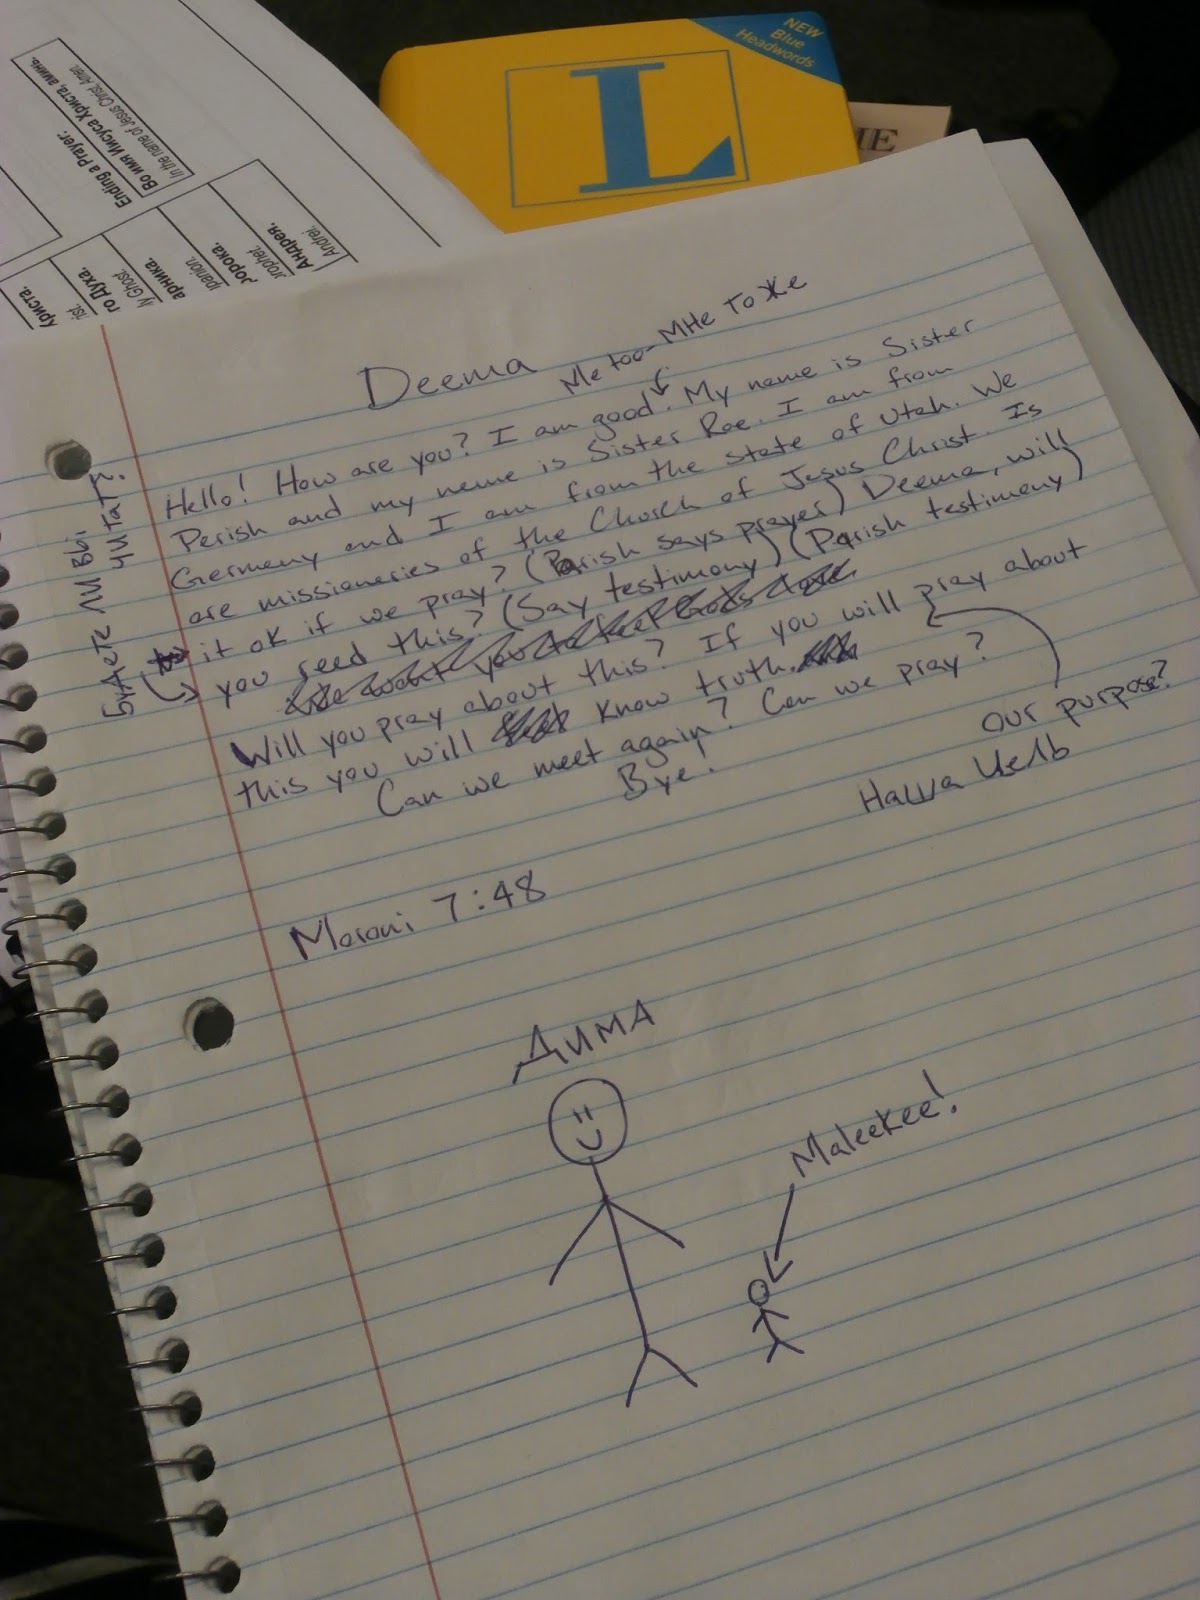 NEW
Blue
Headwords
L
IE
Ending a Prayer:
Во имя Иисуса Христа, аминь.
In the name of Jesus Christ, Amen.
Андрея.
Andrei.
рорoка.
rophet.
арника.
ipanion.
го Духа.
ly Ghost.
Христа.
rist.
Deema
Me too - Мне тоже
Hello! How are you? I am good. My name is Sister
Perish and my name is Sister Roe. I am from
Germany and I am from the state of Utah. We
are missionaries of the Church of Jesus Christ. Is
it ok if we pray? (Parish says prayer) Deema, will
you read this? (Say testimony) (Parish testimony)
Will you pray about this? If you will pray about
this you will know truth.
Can we meet again? Can we pray?
Bye!
our purpose?
Наша Цель
Будете ли вы
читать?
Moroni 7:48
Дима
Maleekee!